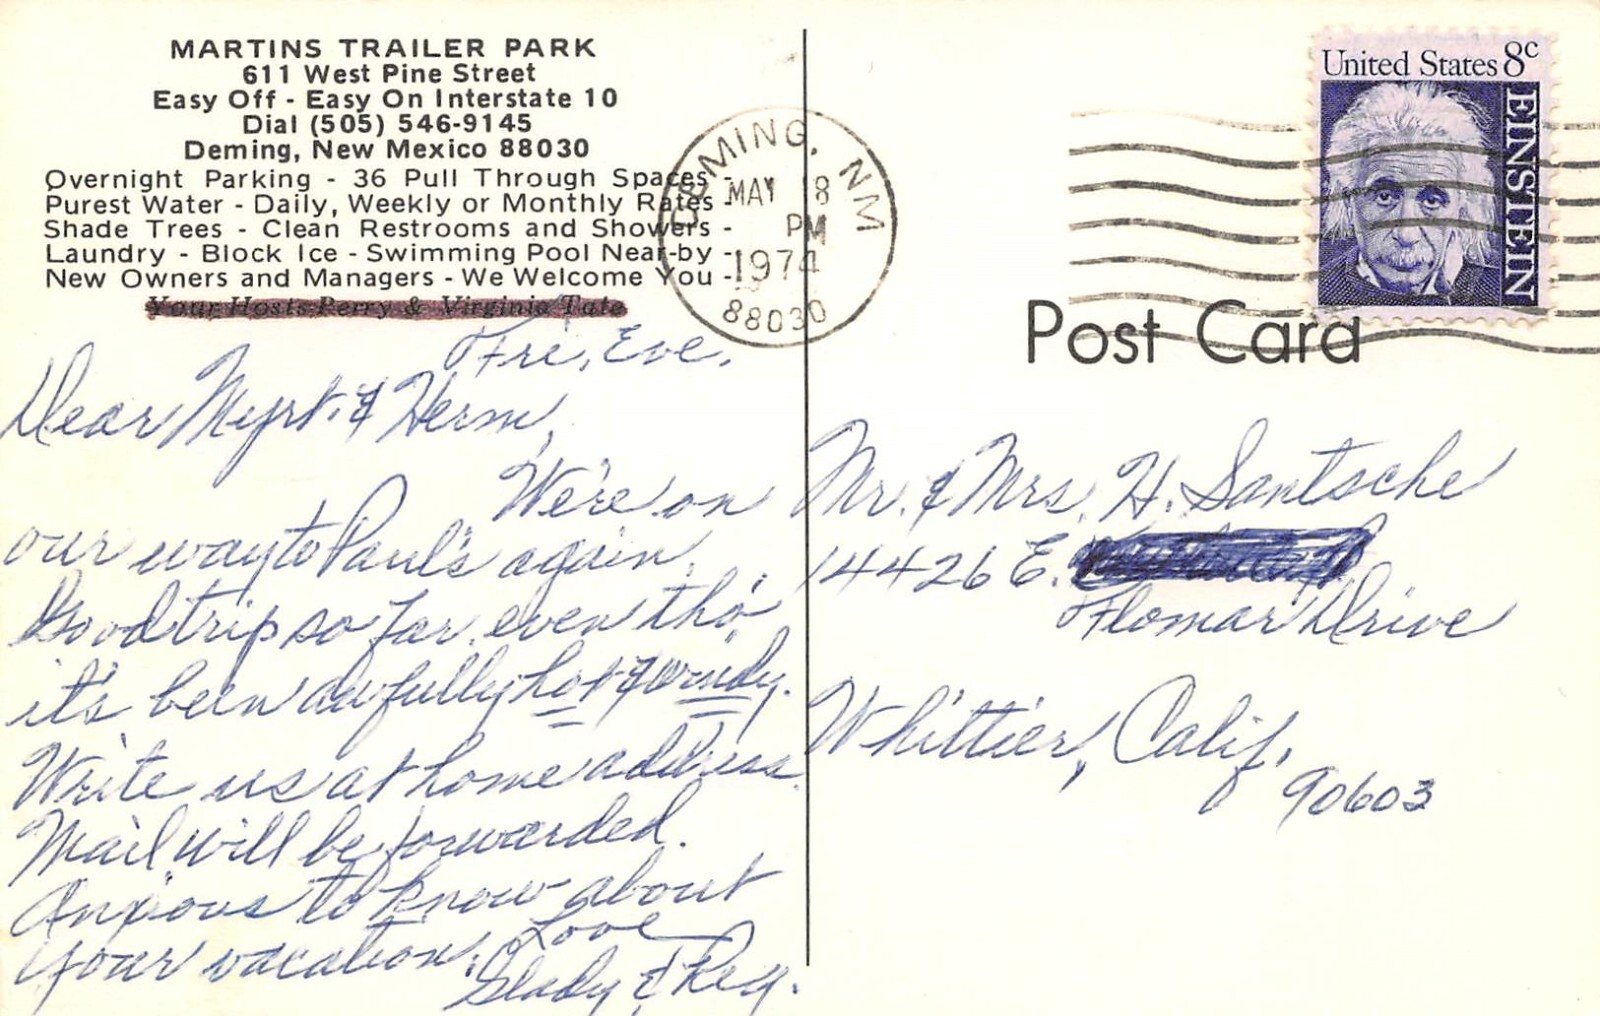 MARTINS TRAILER PARK
611 West Pine Street
Easy Off - Easy On Interstate 10
Dial (505) 546-9145
Deming, New Mexico 88030
Overnight Parking - 36 Pull Through Spaces -
Purest Water - Daily, Weekly or Monthly Rates -
Shade Trees - Clean Restrooms and Showers -
Laundry - Block Ice - Swimming Pool Near-by -
New Owners and Managers - We Welcome You -
Your Hosts: Perry & Virginia Tate
Fri, Eve.
Dear Myrt. & Herm,
We're on
our way to Paul's again.
Good trip so far, even tho'
it's been awfully hot & windy.
Write us at home address.
Mail will be forwarded.
Anxious to know about
your vacation. Love
Glady & Reg.
DEMING, NM
MAY 18
PM
1974
88030
United States 8c
EINSTEIN
Post Card
Mr. & Mrs. H. Santsche
14426 E.
Flomar Drive
Whittier, Calif.
90603